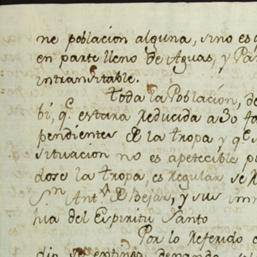 ne poblacion alguna, sino es q
en parte lleno de Aguas, y Pa
intransitable.
Toda la Poblacion, de
bi, q.e estará reducida a 30 fa
pendientes de la tropa y q.e s
situacion no es apetecible p
dose la tropa, es regular se r
S.n Ant.o de Bejar, y sus inm
hia del Espiritu Santo
Por lo referido
dio se entinga demanda